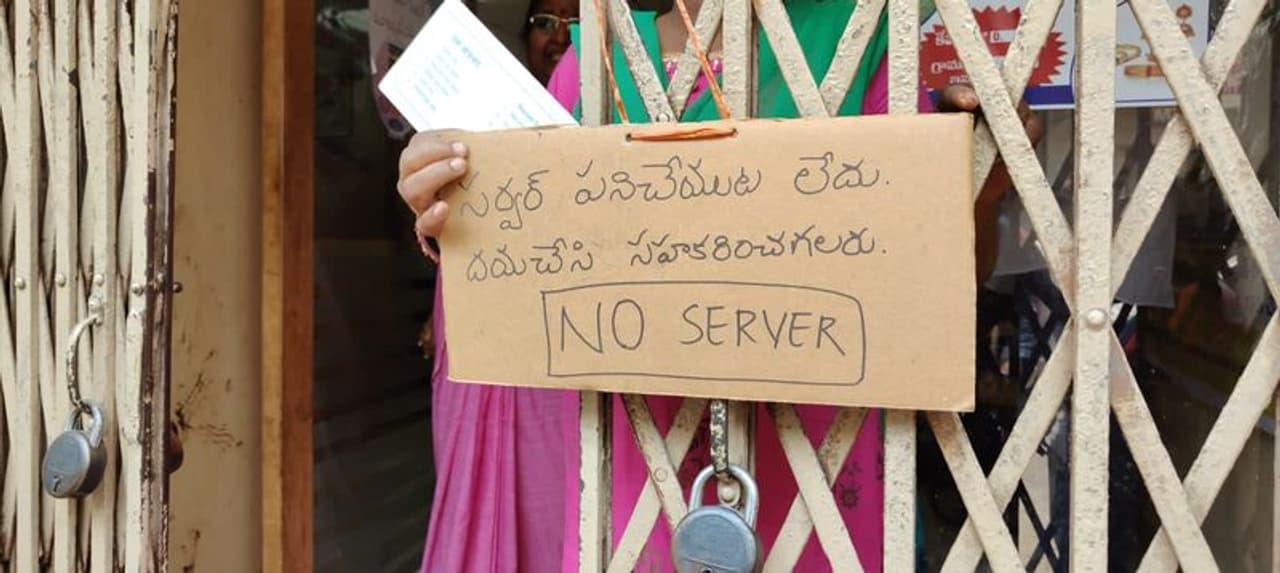 సర్వర్ పనిచేయుట లేదు.
దయచేసి సహకరించగలరు.
NO SERVER